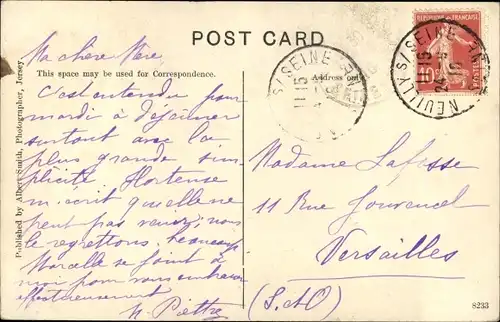 POST CARD
This space may be used for Correspondence.
Address only
Published by Albert Smith, Photographer, Jersey.
Ma chère Mère
C'est entendu pour
mardi à déjeuner
surtout avec la
plus grande sim
plicité Hortense
m'écrit qu'elle ne
peut pas venir, nous
le regrettons beaucoup
Marcelle se joint à
moi pour vous embrasser
affectueusement
Madame Lafosse
11 Rue Jouvencel
Versailles
(S.&O)
NEUILLY S/SEINE
11 15
24
10
S/SEINE
11 15
10
8233